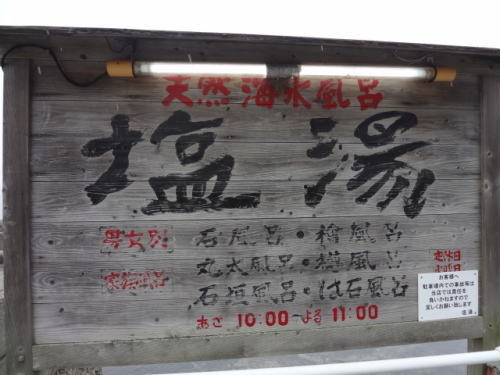 天然海水風呂
塩湯
男女別 石風呂・檜風呂
丸太風呂・樽風呂
石垣風呂・は石風呂
あさ 10:00〜よる 11:00
定休日
火曜日
お客様へ
駐車場内での事故等は
当店では責任を
負いかねますので
宜しくお願い致します
塩湯